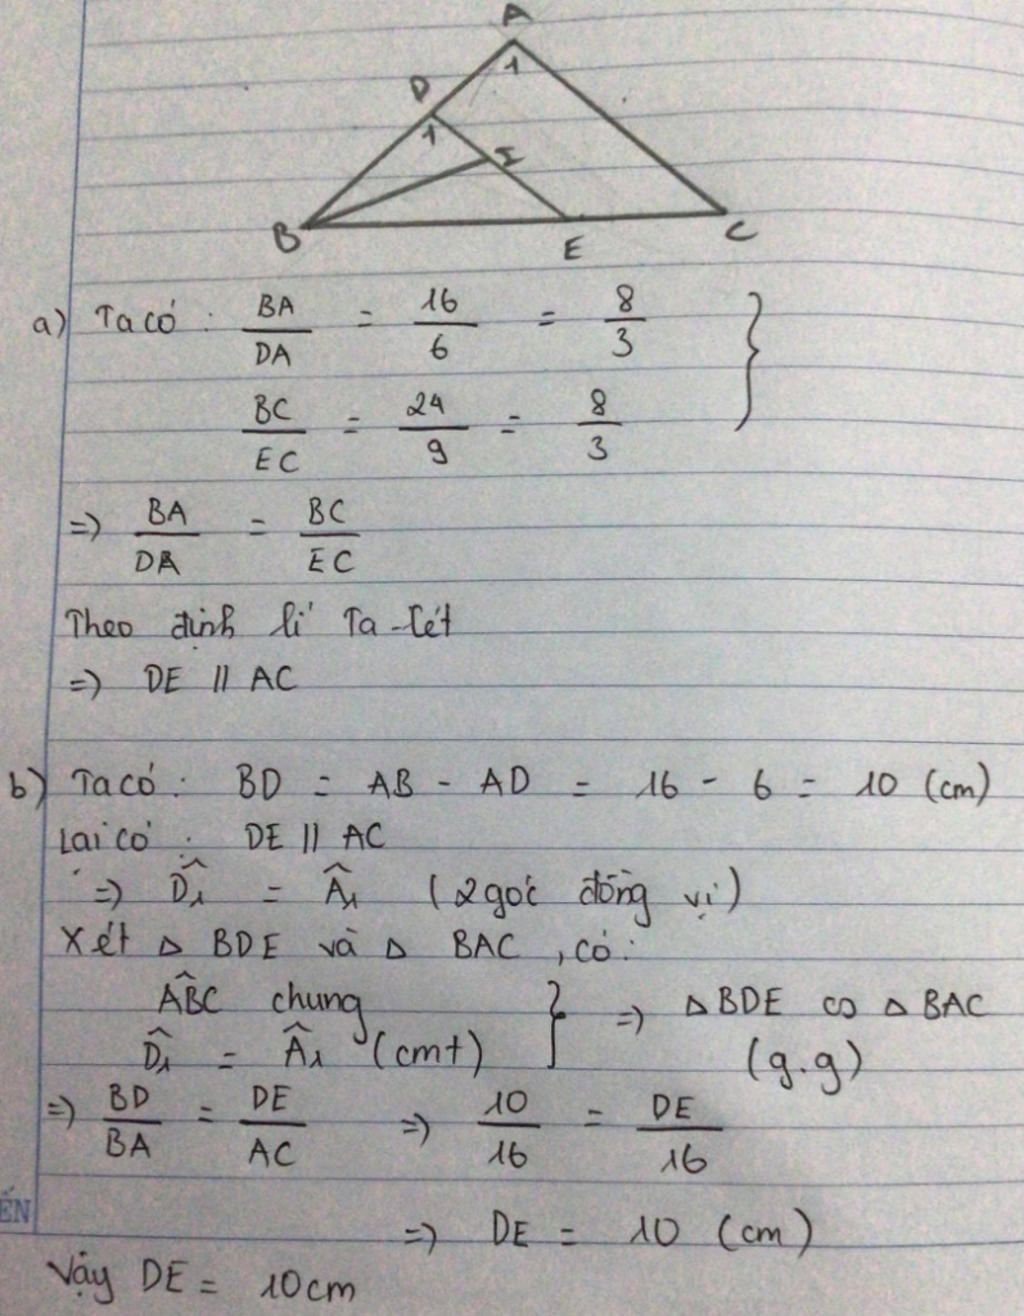 A
D
1
1
I
B
E
C
a) Ta có : BA/DA = 16/6 = 8/3 }
BC/EC = 24/9 = 8/3
=> BA/DA = BC/EC
Theo định lí Ta-lét
=> DE // AC
b) Ta có : BD = AB - AD = 16 - 6 = 10 (cm)
Lại có : DE // AC
=> D̂₁ = Â₁ (2 góc đồng vị)
Xét △ BDE và △ BAC , có :
ABĈ chung } => △ BDE ∽ △ BAC
D̂₁ = Â₁ (cmt) (g.g)
=> BD/BA = DE/AC => 10/16 = DE/16
ẾN
=> DE = 10 (cm)
Vậy DE = 10cm